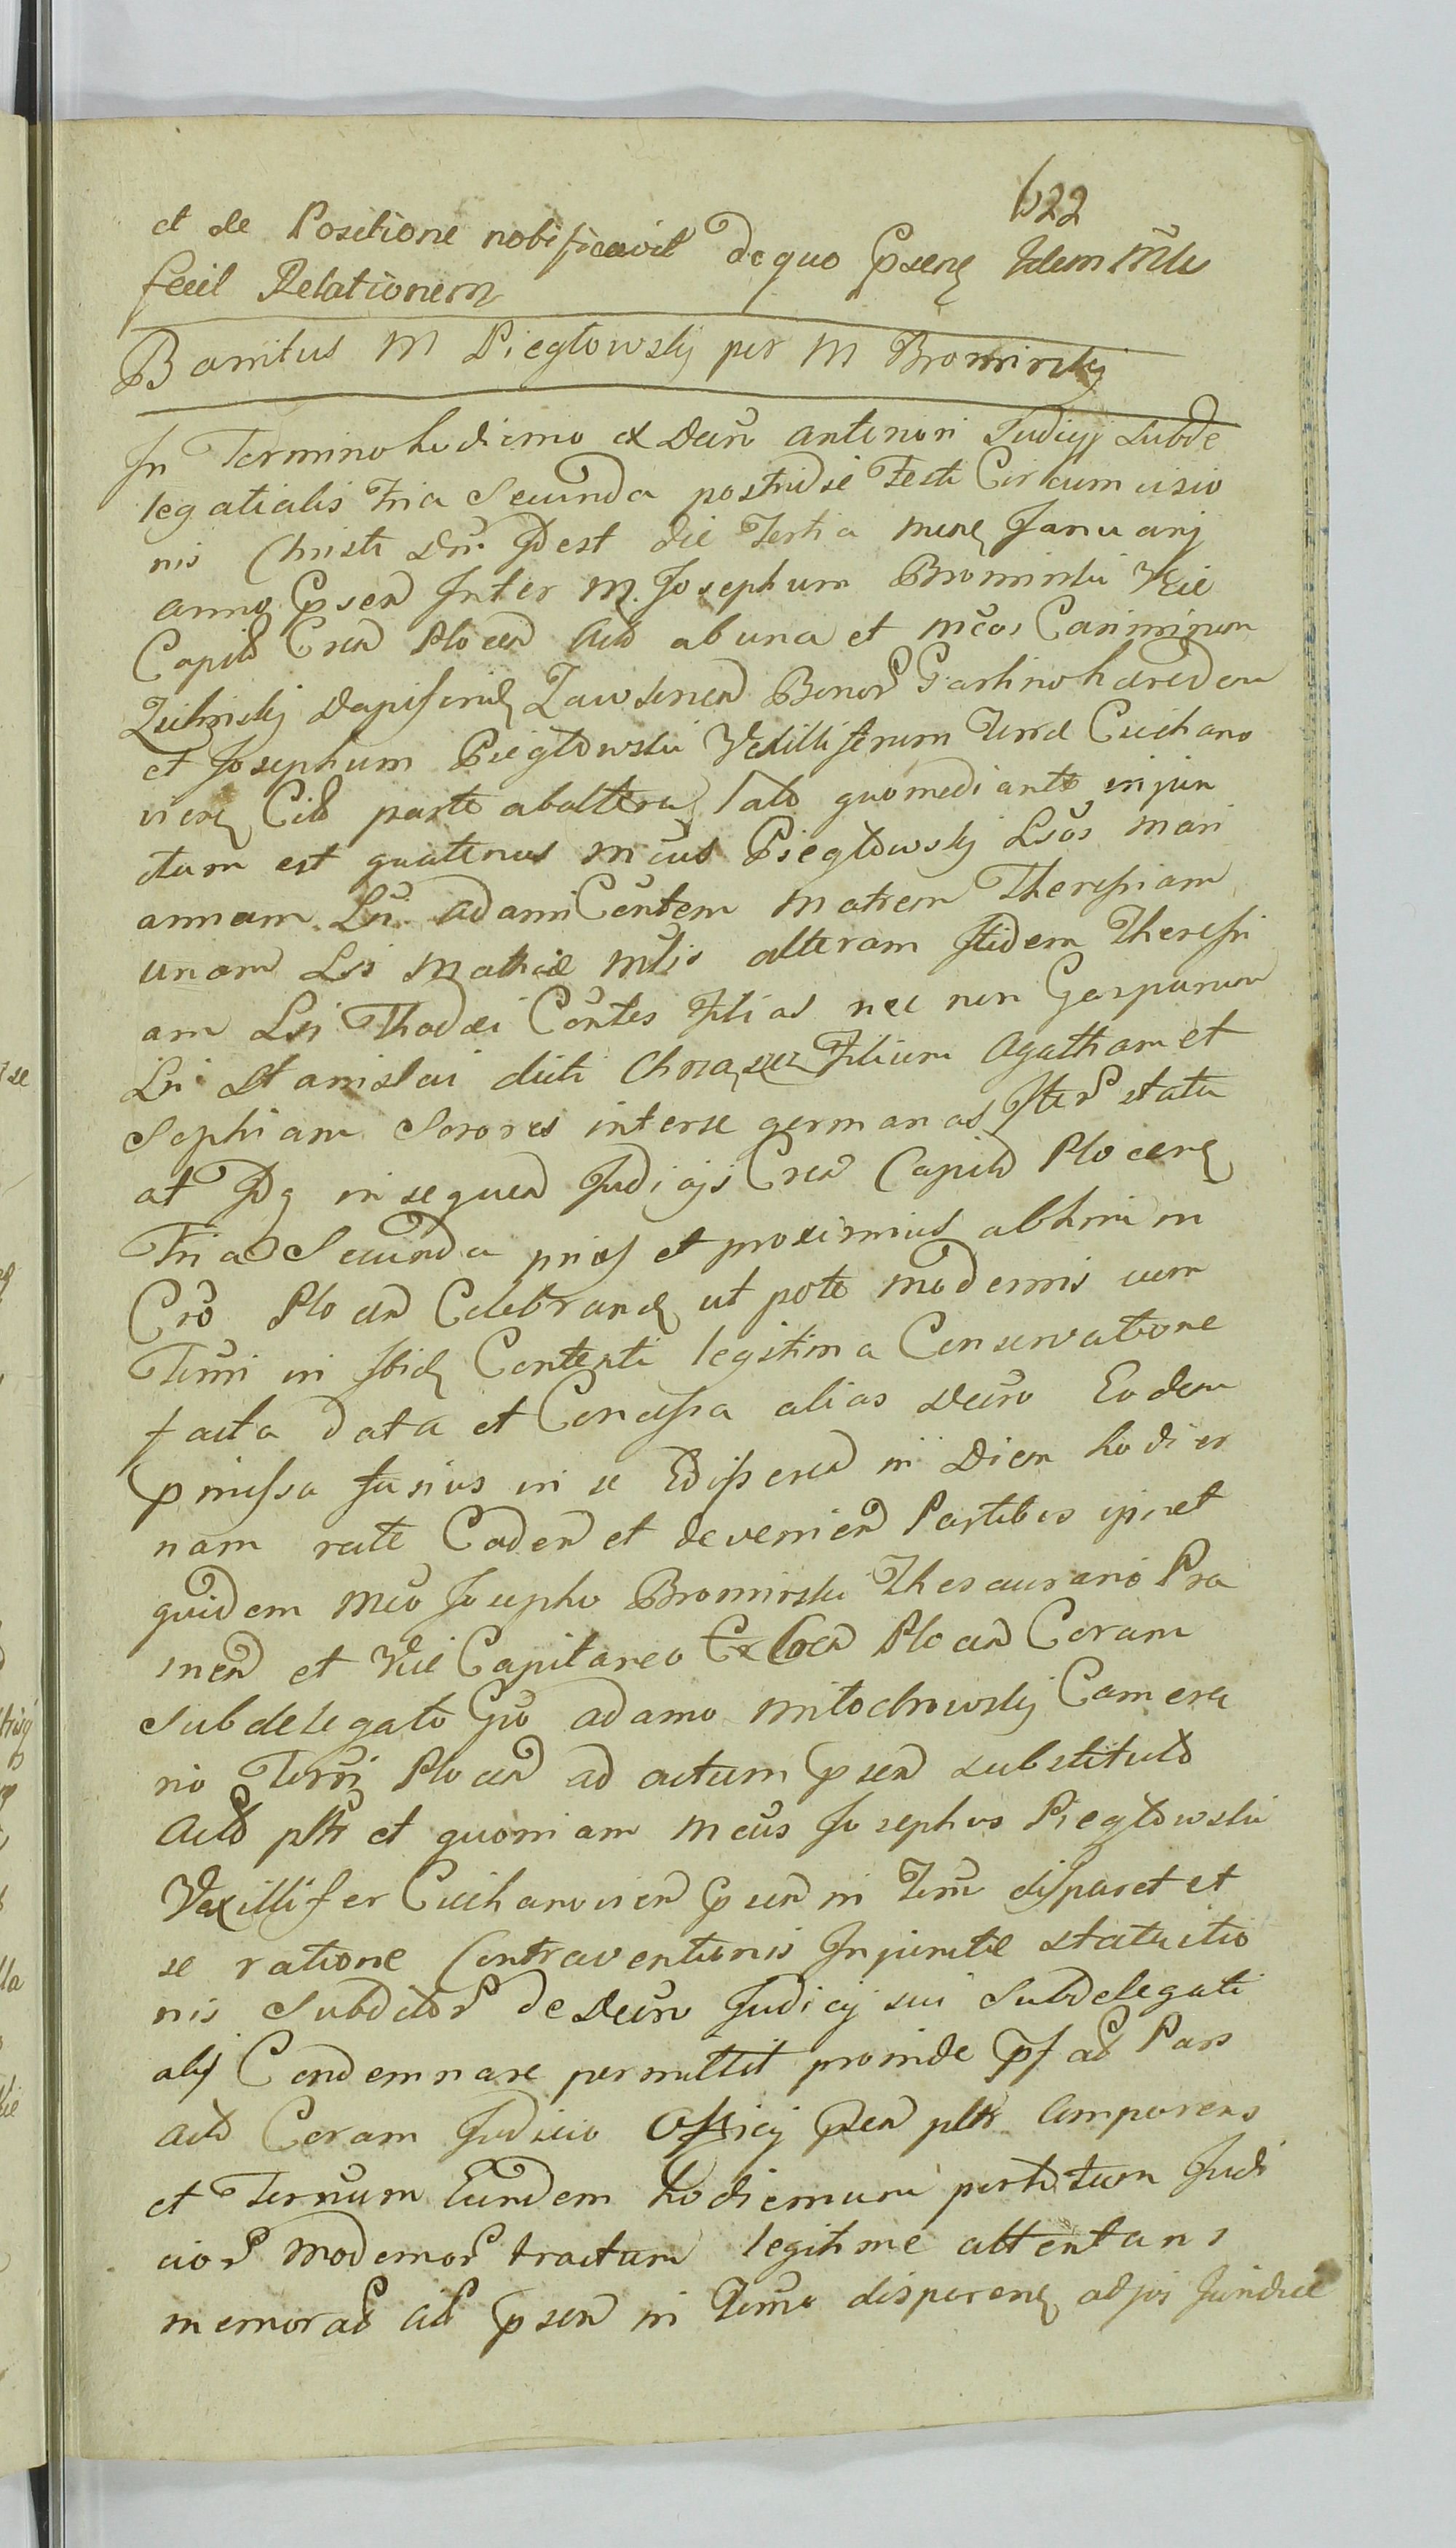 622
et de Positione notificavit de quo Psens Idem Mlis
fecit Relationem
Banitus M Piegłowsky per M Bromirsky
In Termino hodierno ex Decro anteriori Judicij Subde
legatialis Fria Secunda postridie Festi Circumcisio
nis Christi Dni Idest die Tertia mens Januarij
anno Psen Inter M. Josephum Bromirski Vice
Capit Cren Plocen Act ab una et Mcos Casimirum
Zielinsky Dapiferid Zawskrien Bonor Garlino haeredem
et Josephum Piegłowski Vexilliferum Terrae Ciechano
viens Cit parte ab altera lato quo mediante injun
ctum est quatenus Mcus Piegłowsky Lsos Mari
annam Lsi Adami Contem Matrem Theresiam
unam Lsi Mathiae Mlis alteram Itidem Theresi
am Lsi Thadaei Contes Filias nec non Gasparum
Lsi Stanislai dicti Chrząszcz Filium Agatham et
Sophiam Sorores interse germanas Iter statu
at Idq in sequen Judicijs Cren Capit Plocens
Fria Secunda prios et proximius abhinc in
Cro Plocen Celebrand ut pote modernis cum
Termi in Ibid Contenti legitima Conservatione
facta data et Concessa alias Decro Eodem
Pmissa fusius in se Edisseren in Diem hodier
nam recte Caden et devenien Partibus ipis et
quidem Mco Josepho Bromirski Thesaurario Pra
snen et Vice Capitaneo Cren Plocen Coram
Subdelegato Gso Adamo Miłochowsky Camera
rio Terrj Plocen ad actum Psen substituto
Act pltr et quoniam Mcus Josephus Piegłowski
Vexillifer Ciechanovien Psen in Termi disparet et
se ratione Contraventionis Injunctae statuitio
nis Subditor de Decro Judicij sui Subdelegati
alij Condemnare permittit proinde Pfat Pars
act Coram Judicio Officij Psen pltr Comparens
et Ternum Eundem hodiernum per totum Judi
cior Modernor tractum legitime attentans
memorat Cit Psen in Termo disparens adjus Jundicae